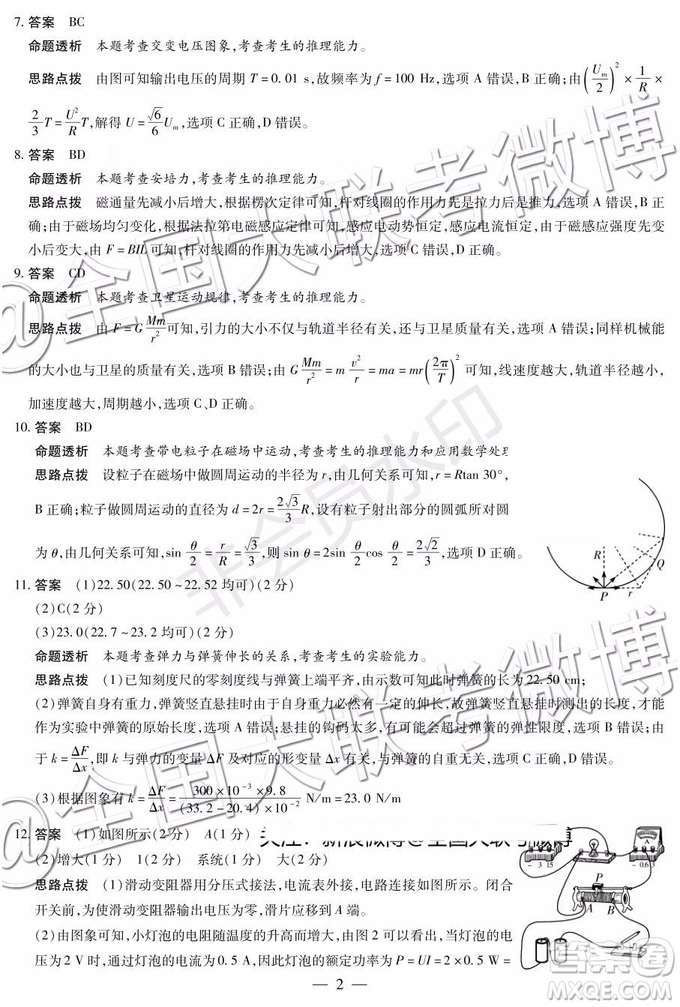 7. 答案　BC
命题透析　本题考查交变电压图象，考查考生的推理能力。
思路点拨　由图可知输出电压的周期 T = 0.01 s，故频率为 f = 100 Hz，选项 A 错误，B 正确；由(U_m/2)² × 1/R ×
2/3 T = U²/R T，解得 U = √6/6 U_m，选项 C 正确，D 错误。
8. 答案　BD
命题透析　本题考查安培力，考查考生的推理能力。
思路点拨　磁通量先减小后增大，根据楞次定律可知，杆对线圈的作用力先是拉力后是推力，选项 A 错误，B 正
确；由于磁场均匀变化，根据法拉第电磁感应定律可知，感应电动势恒定，感应电流恒定，由于磁感应强度先变
小后变大，由 F = BIL 可知，杆对线圈的作用力先减小后增大，选项 C 错误，D 正确。
9. 答案　CD
命题透析　本题考查卫星运动规律，考查考生的推理能力。
思路点拨　由 F = G Mm/r² 可知，引力的大小不仅与轨道半径有关，还与卫星质量有关，选项 A 错误；同样机械能
的大小也与卫星的质量有关，选项 B 错误；由 G Mm/r² = m v²/r = ma = mr(2π/T)² 可知，线速度越大，
加速度越大，周期越小，选项 C、D 正确。
10. 答案　BD
命题透析　本题考查带电粒子在磁场中运动，考查考生的推理能力和应用数学处理
思路点拨　设粒子在磁场中做圆周运动的半径为 r，由几何关系可知，r = Rtan 30°，
B 正确；粒子做圆周运动的直径为 d = 2r = 2√3/3 R，设有粒子射出部分的圆弧所对圆
为 θ，由几何关系可知，sin θ/2 = r/R = √3/3，则 sin θ = 2sin θ/2 cos θ/2 = 2√2/3，选项 D 正确。
R
Q
P
r
11. 答案　(1)22.50(22.50～22.52 均可)(2 分)
(2)C(2 分)
(3)23.0(22.7～23.2 均可)(2 分)
命题透析　本题考查弹力与弹簧伸长的关系，考查考生的实验能力。
思路点拨　(1)已知刻度尺的零刻度线与弹簧上端平齐，由示数可知此时弹簧的长度为22.50 cm；
(2)弹簧自身有重力，弹簧竖直悬挂时由于自身重力必然有一定的伸长，故弹簧竖直悬挂时测出的长度，才能
作为实验中弹簧的原始长度，选项 A 错误；悬挂的钩码太多，有可能会超过弹簧的弹性限度，选项 B 错误；由
于 k = ΔF/Δx，即 k 与弹力的变量 ΔF 及对应的形变量 Δx 有关，与弹簧的自重无关，选项 C 正确。
(3)根据图象有 k = ΔF/Δx = 300×10⁻³×9.8/(33.2－20.4)×10⁻² N/m = 23.0 N/m
12. 答案　(1)如图所示(2 分)　A(1 分)
(2)增大(1 分)　1(2 分)　系统(1 分)　大(2 分)
思路点拨　(1)滑动变阻器用分压式接法，电流表外接，电路连接如图所示。闭合
开关前，为使滑动变阻器输出电压为零，滑片应移到 A 端。
(2)由图象可知，小灯泡的电阻随温度的升高而增大，由图 2 可以看出，当灯泡的电
压为 2 V 时，通过灯泡的电流为 0.5 A，因此灯泡的功率为 P = UI = 2 × 0.5 W =
- 3 15
- 0.6 3
P
A
B
— 2 —
@全国大联考微博
@全国大联考微博
非会员水印
关注：新浪微博@全国大联考微博